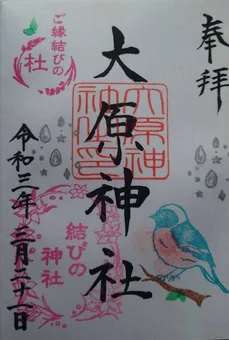 奉拝
大原神社
大原神社之印
ご縁結びの
社
結びの
神社
令和三年三月二十一日